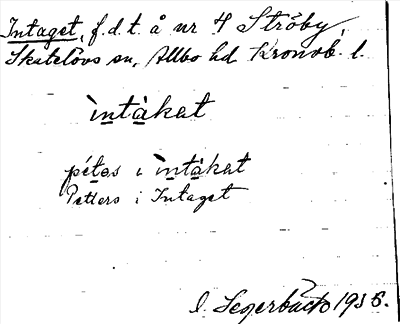 Intaget, f.d.t. å nr 4 Ströby,
Skatelövs sn, Allbo hd Kronob. l.
ìntàkat
pétəs ι ìntàkat
Petters i Intaget
I. Segerbäck 1935.